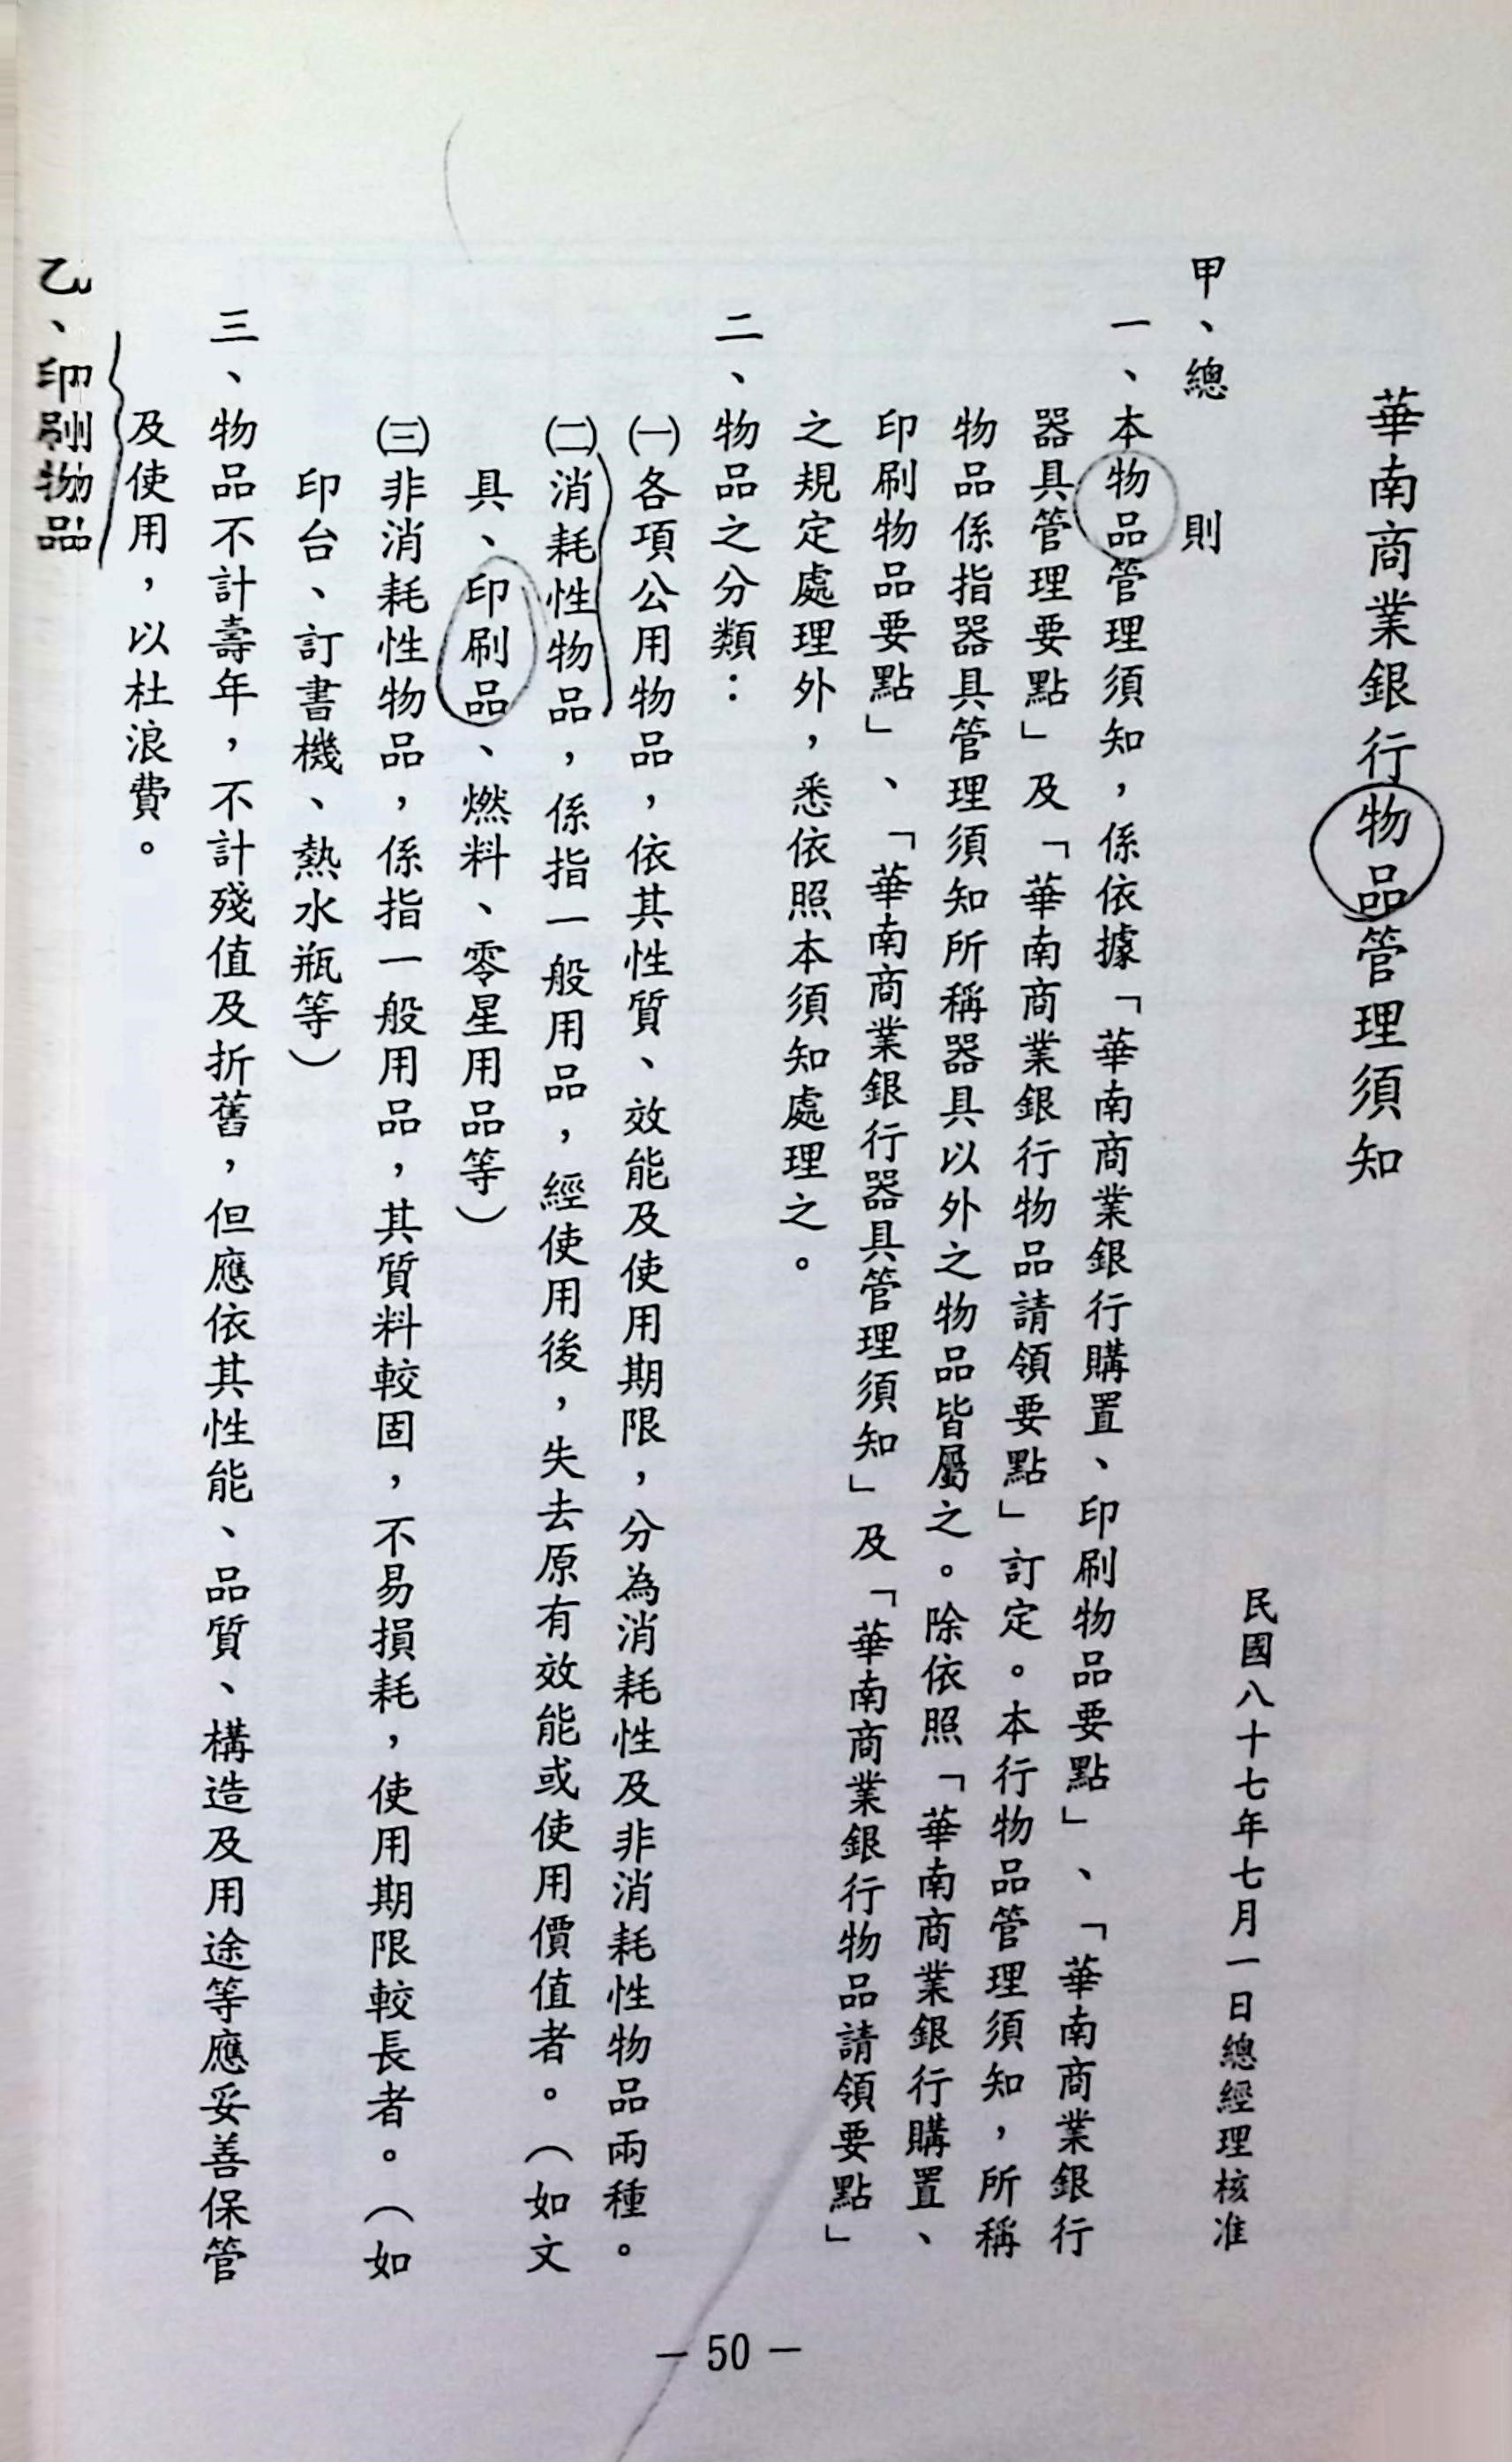 華南商業銀行物品管理須知
民國八十七年七月一日總經理核准
甲、總則
一、本物品管理須知，係依據「華南商業銀行購置、印刷物品要點」、「華南商業銀行
器具管理要點」及「華南商業銀行物品請領要點」訂定。本行物品管理須知，所稱
物品係指器具管理須知所稱器具以外之物品皆屬之。除依照「華南商業銀行購置、
印刷物品要點」、「華南商業銀行器具管理須知」及「華南商業銀行物品請領要點」
之規定處理外，悉依照本須知處理之。
二、物品之分類：
㈠各項公用物品，依其性質、效能及使用期限，分為消耗性及非消耗性物品兩種。
㈡消耗性物品，係指一般用品，經使用後，失去原有效能或使用價值者。（如文
具、印刷品、燃料、零星用品等）
㈢非消耗性物品，係指一般用品，其質料較固，不易損耗，使用期限較長者。（如
印台、訂書機、熱水瓶等）
三、物品不計壽年，不計殘值及折舊，但應依其性能、品質、構造及用途等應妥善保管
及使用，以杜浪費。
乙、印刷物品
－50－